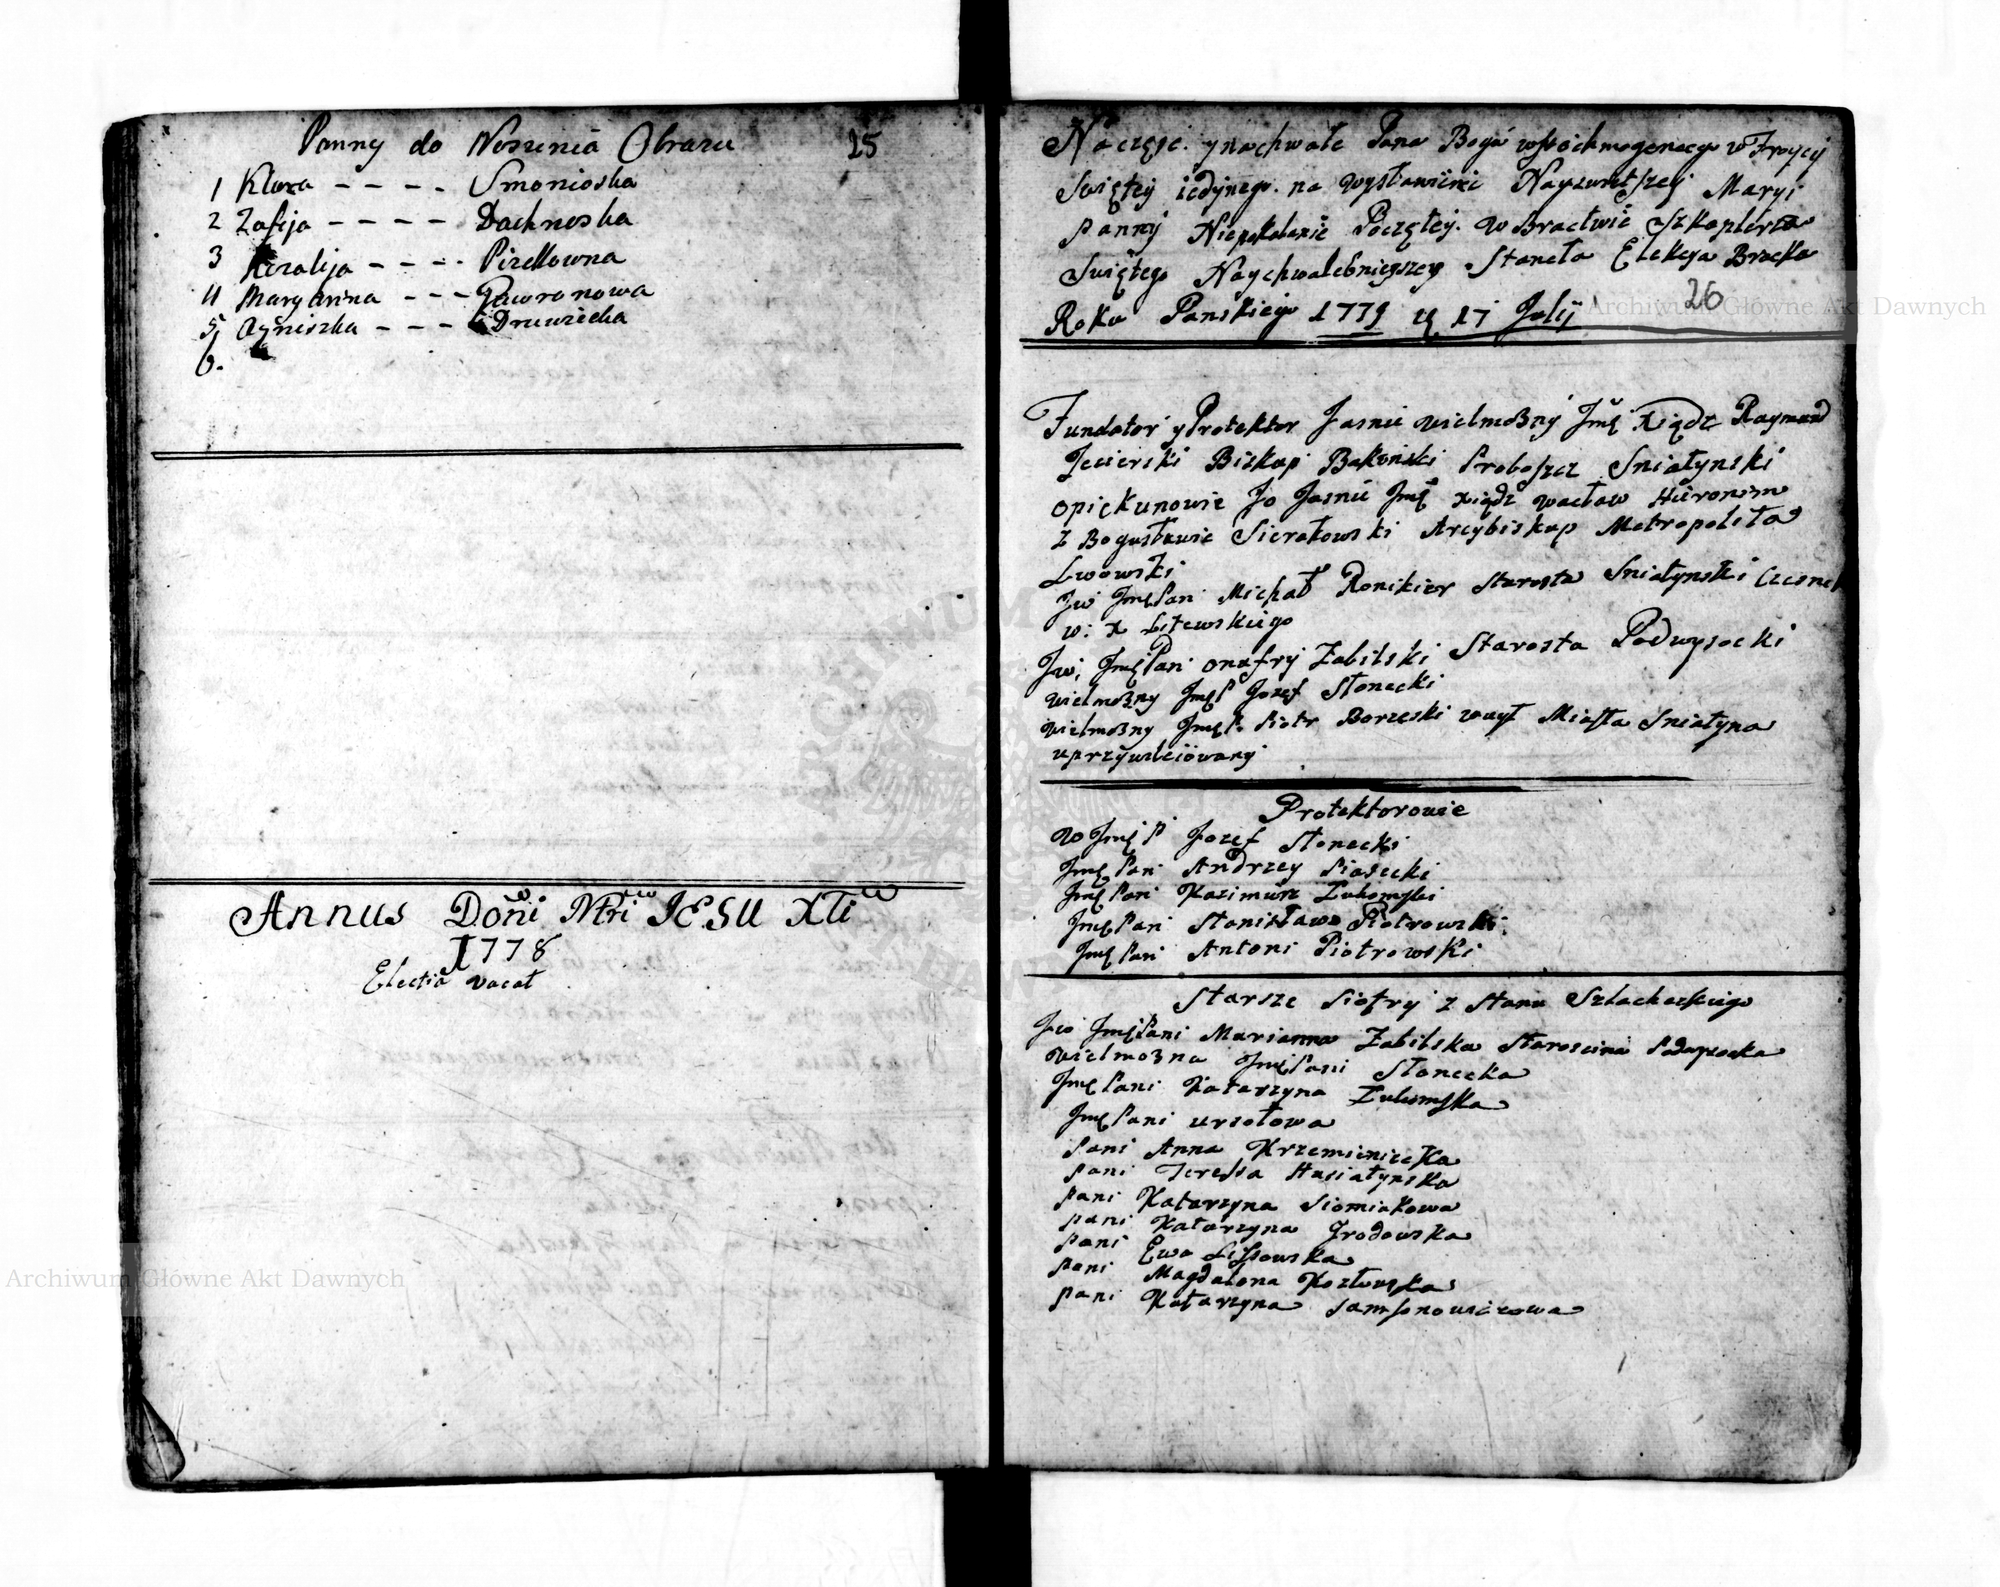 Panny do Noszenia Obrazu 25
1 Klara - - - - Smonioska
2 Zofija - - - - Dachnoska
3 Rozalija - - - - Pizellowna
4 Maryanna - - - Gaworonowa
5 Agniszka - - - Druwzecka
6.
Annus Doni Nri IESU XTi
1778
Electia vacat
Na częsc. y na chwałe Pana Boga wszechmogencego w Troycy
Swiętey iedynego. na wysławienie Nayswiętszey Maryi
Panny Niepokalanie Poczętey. w Bractwie Szkaplerza
Swiętego Naychwalebnieyszey Staneła Elekcya Bracka
26
Roku Panskiego 1779 d 17 Julij
Fundator y Protektor Jasnie wielmożny Jmę Xiądz Raymund
Jezierski Biskup Bakoński Proboszcz Sniatynski
opiekunowie Jo Jasnie Jmę xiądz wacław Hieronim
z Bogusławic Sierakowski Arcybiskup Metropolita
Lwowski
Jw Jmę Pan Michał Ronikier Starosta Sniatynski Czesnik
w: x Litewskiego
Jw: Jmę Pan onufry Zabilski Starosta Podwysocki
wielmożny Jmę P Jozef Słonecki
wielmożny Jmę P. Piotr Borzeski woyt Miasta Sniatyna
uprzywileiowany
Protektorowie
W Jmę P Jozef Słonecki
Jmę Pan Andrzey Piasecki
Jmę Pan Kazimierz Łukomski
Jmę Pan Stanisław Piotrowski
Jmę Pan Antoni Piotrowski
Starsze Siostry z Stanu Szlacheckiego
Jw Jmę Pani Marianna Zabilska Staroscina Podwysocka
wielmożna Jmę Pani Słonecka
Jmę Pani Katarzyna Łukomska
Jmę Pani ursołowa
Pani Anna Krzemieniecka
Pani Teressa Husiatynska
Pani Katarzyna Siomiakowa
Pani Katarzyna Grodowska
Pani Ewa Lissowska
Pani Magdalena Kozłowska
Pani Katarzyna Samsonowiczowa
Archiwum Główne Akt Dawnych
Archiwum Główne Akt Dawnych